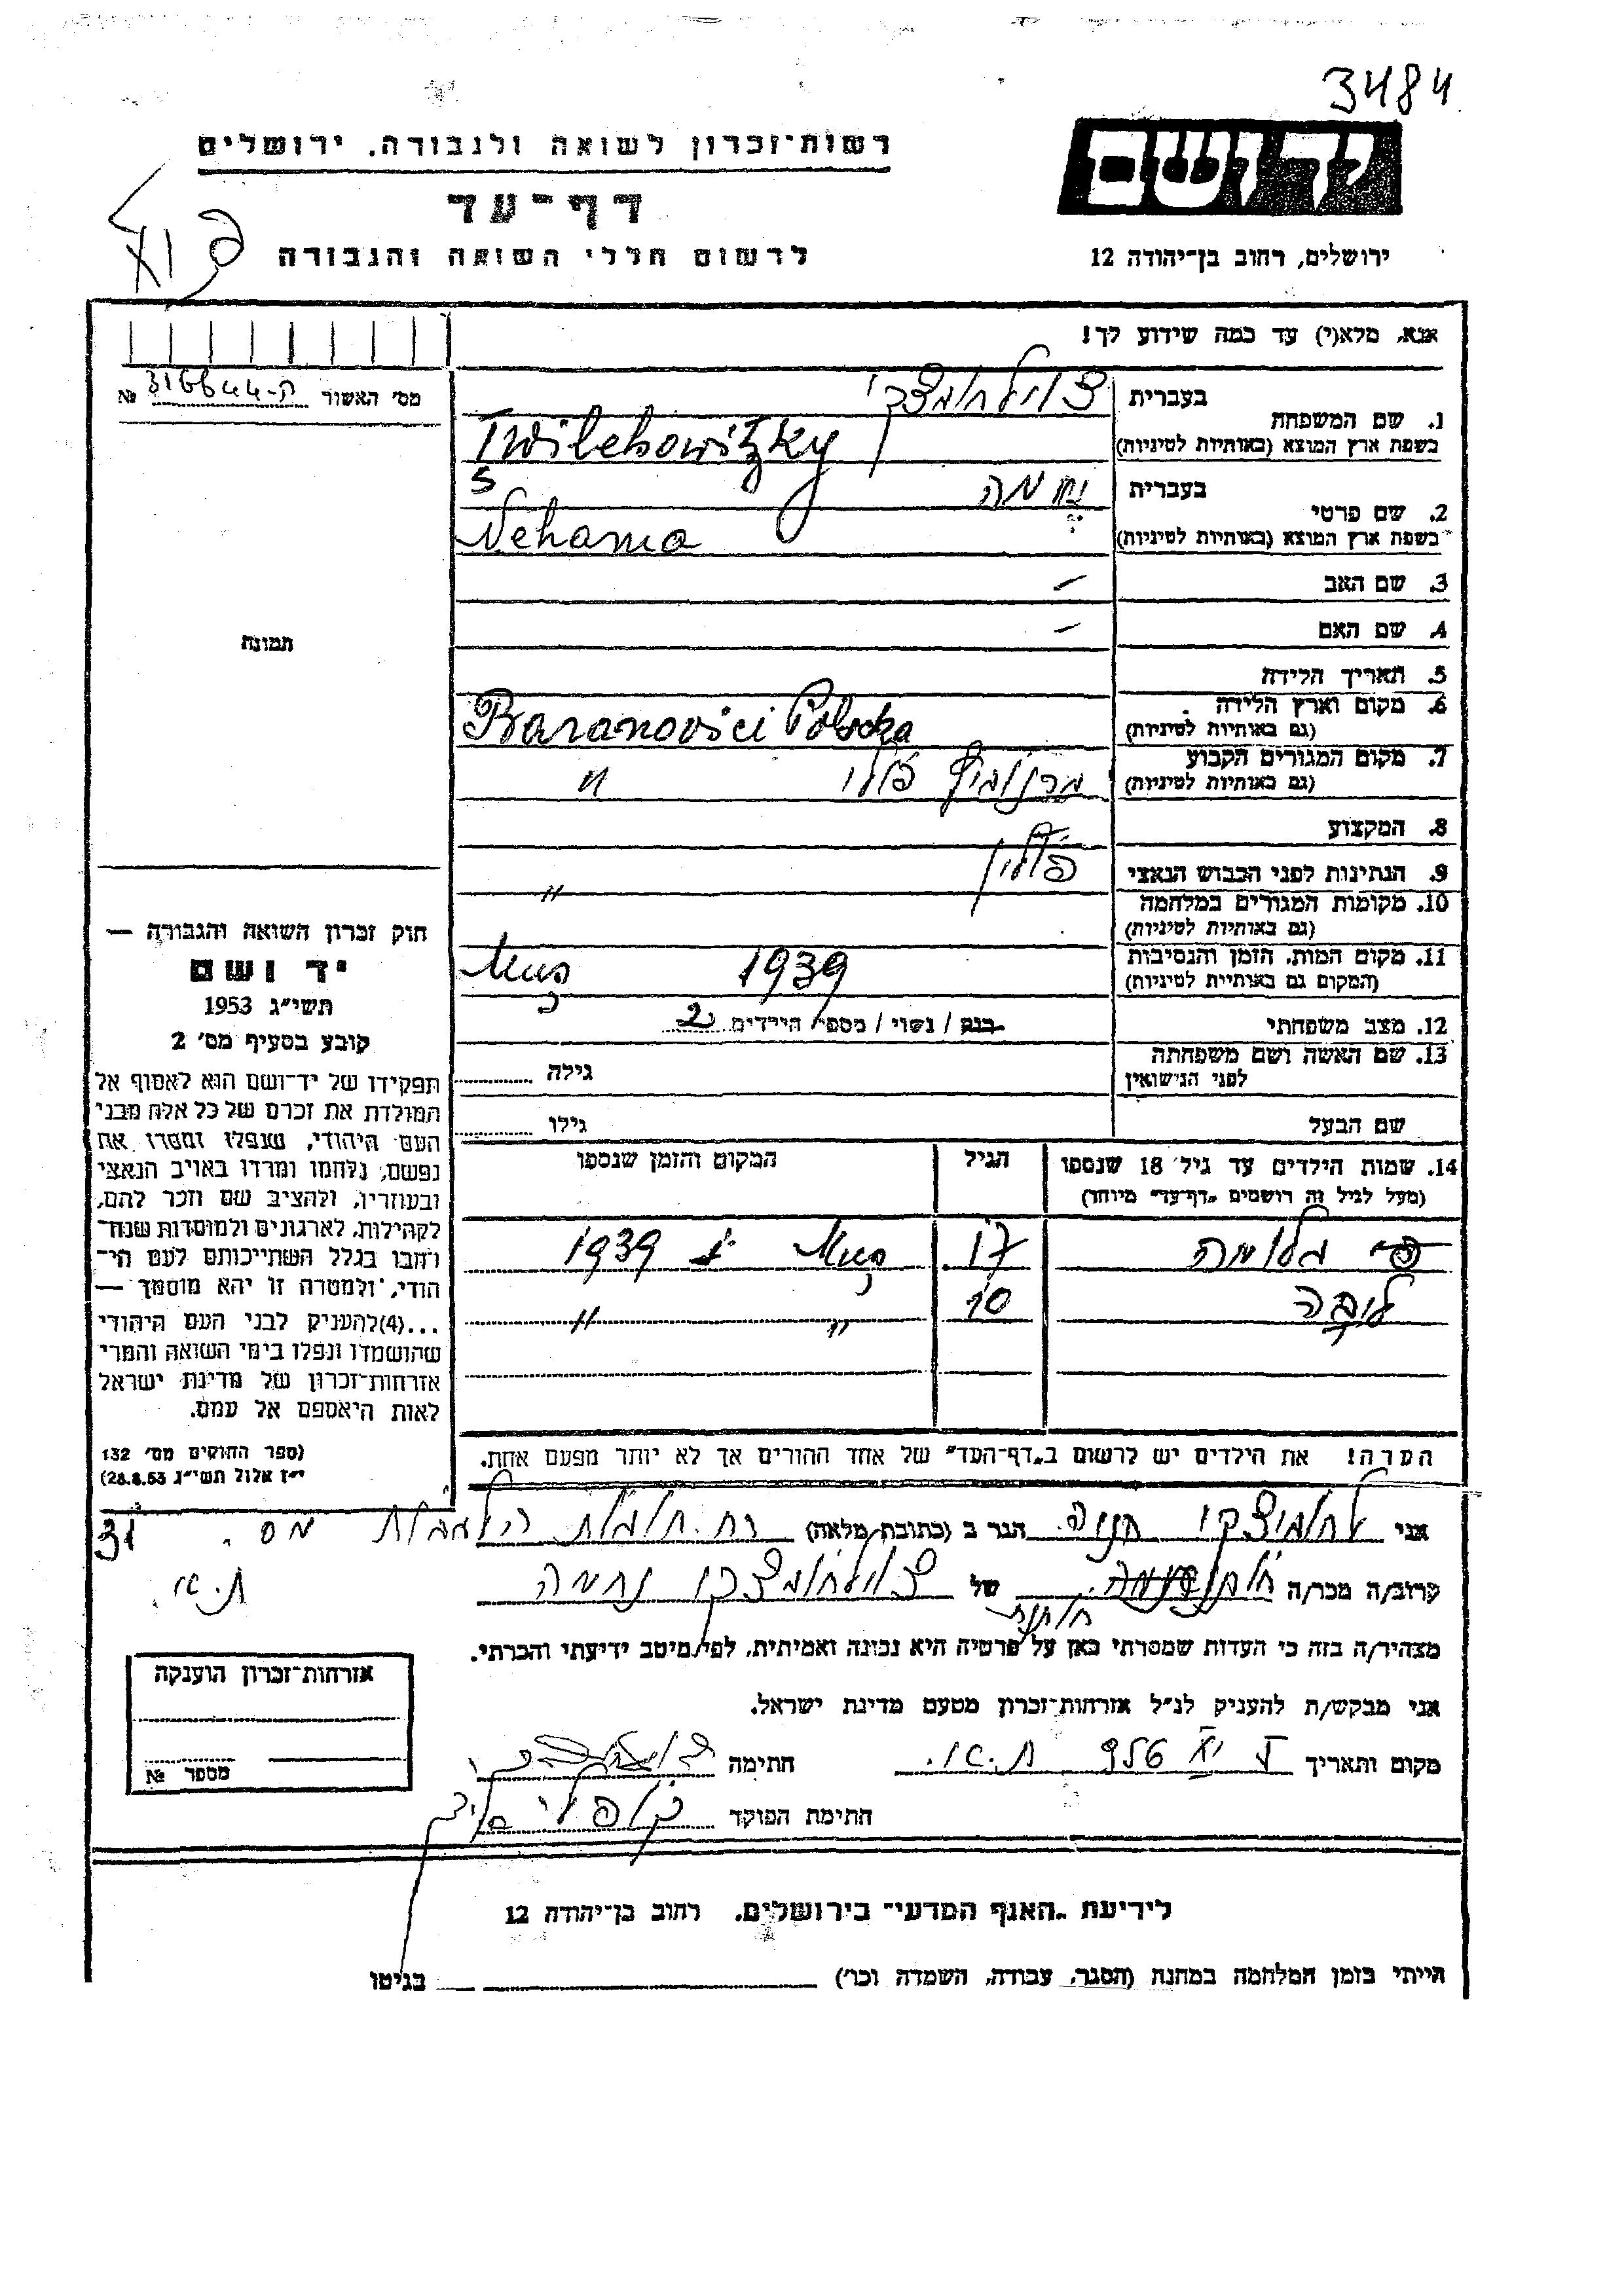 3484
יד ושם
ירושלים, רחוב בן־יהודה 12
רשות־זכרון לשואה ולגבורה. ירושלים
דף־עד
לרשום חללי השואה והגבורה
אנא, מלא(י) עד כמה שידוע לך!
מס' האשור 316644-ק №
1. שם המשפחה
בעברית
בשפת ארץ המוצא (באותיות לטיניות)
Twilehowitzky
2. שם פרטי
בעברית נחמה
בשפת ארץ המוצא (באותיות לטיניות)
Nehama
3. שם האב –
4. שם האם –
5. תאריך הלידה
6. מקום וארץ הלידה
(גם באותיות לטיניות)
Baranovici Polscka
7. מקום המגורים הקבוע
(גם באותיות לטיניות)
"
8. המקצוע
9. הנתינות לפני הכבוש הנאצי פולין
10. מקומות המגורים במלחמה "
(גם באותיות לטיניות)
11. מקום המות, הזמן והנסיבות 1939
(המקום גם באותיית לטיניות)
12. מצב משפחתי רווק / נשוי / מספר הילדים 2
13. שם האשה ושם משפחתה
לפני הנישואין
גילה
שם הבעל
גילו
14. שמות הילדים עד גיל 18 שנספו
(מעל לגיל זה רושמים „דף־עד" מיוחד)
הגיל
המקום והזמן שנספו
17 1939
ליבה 10 " "
הערה! את הילדים יש לרשום ב„דף־העד" של אחד ההורים אך לא יותר מפעם אחת.
תמונה
חוק זכרון השואה והגבורה —
יד ושם
תשי"ג 1953
קובע בסעיף מס' 2
תפקידו של יד־ושם הוא לאסוף אל
המולדת את זכרם של כל אלה מבני
העם היהודי, שנפלו ומסרו את
נפשם, נלחמו ומרדו באויב הנאצי
ובעוזריו, ולהציב שם וזכר להם,
לקהילות, לארגונים ולמוסדות שנח־
רחבו בגלל השתייכותם לעם הי־
הודי, ולמטרה זו יהא מוסמך —
...(4)להעניק לבני העם היהודי
שהושמדו ונפלו בימי השואה והמרי
אזרחות־זכרון של מדינת ישראל
לאות היאספם אל עמם.
(ספר החוקים מס' 132
י"ז אלול תשי"ג 28.8.53)
אני הגר ב (כתובת מלאה) רח. מס. 31
ת.א.
קרוב/ה מכר/ה של נחמה
מצהיר/ה בזה כי העדות שמסרתי כאן על פרטיה היא נכונה ואמיתית, לפי מיטב ידיעתי והכרתי.
אני מבקש/ת להעניק לנ"ל אזרחות־זכרון מטעם מדינת ישראל.
מקום ותאריך ת.א. חתימה
חתימת הפוקד
אזרחות־זכרון הוענקה
מספר №
לידיעת „האגף המדעי" בירושלים. רחוב בן־יהודה 12
הייתי בזמן המלחמה במחנה (הסגר, עבודה, השמדה וכו') בגיטו